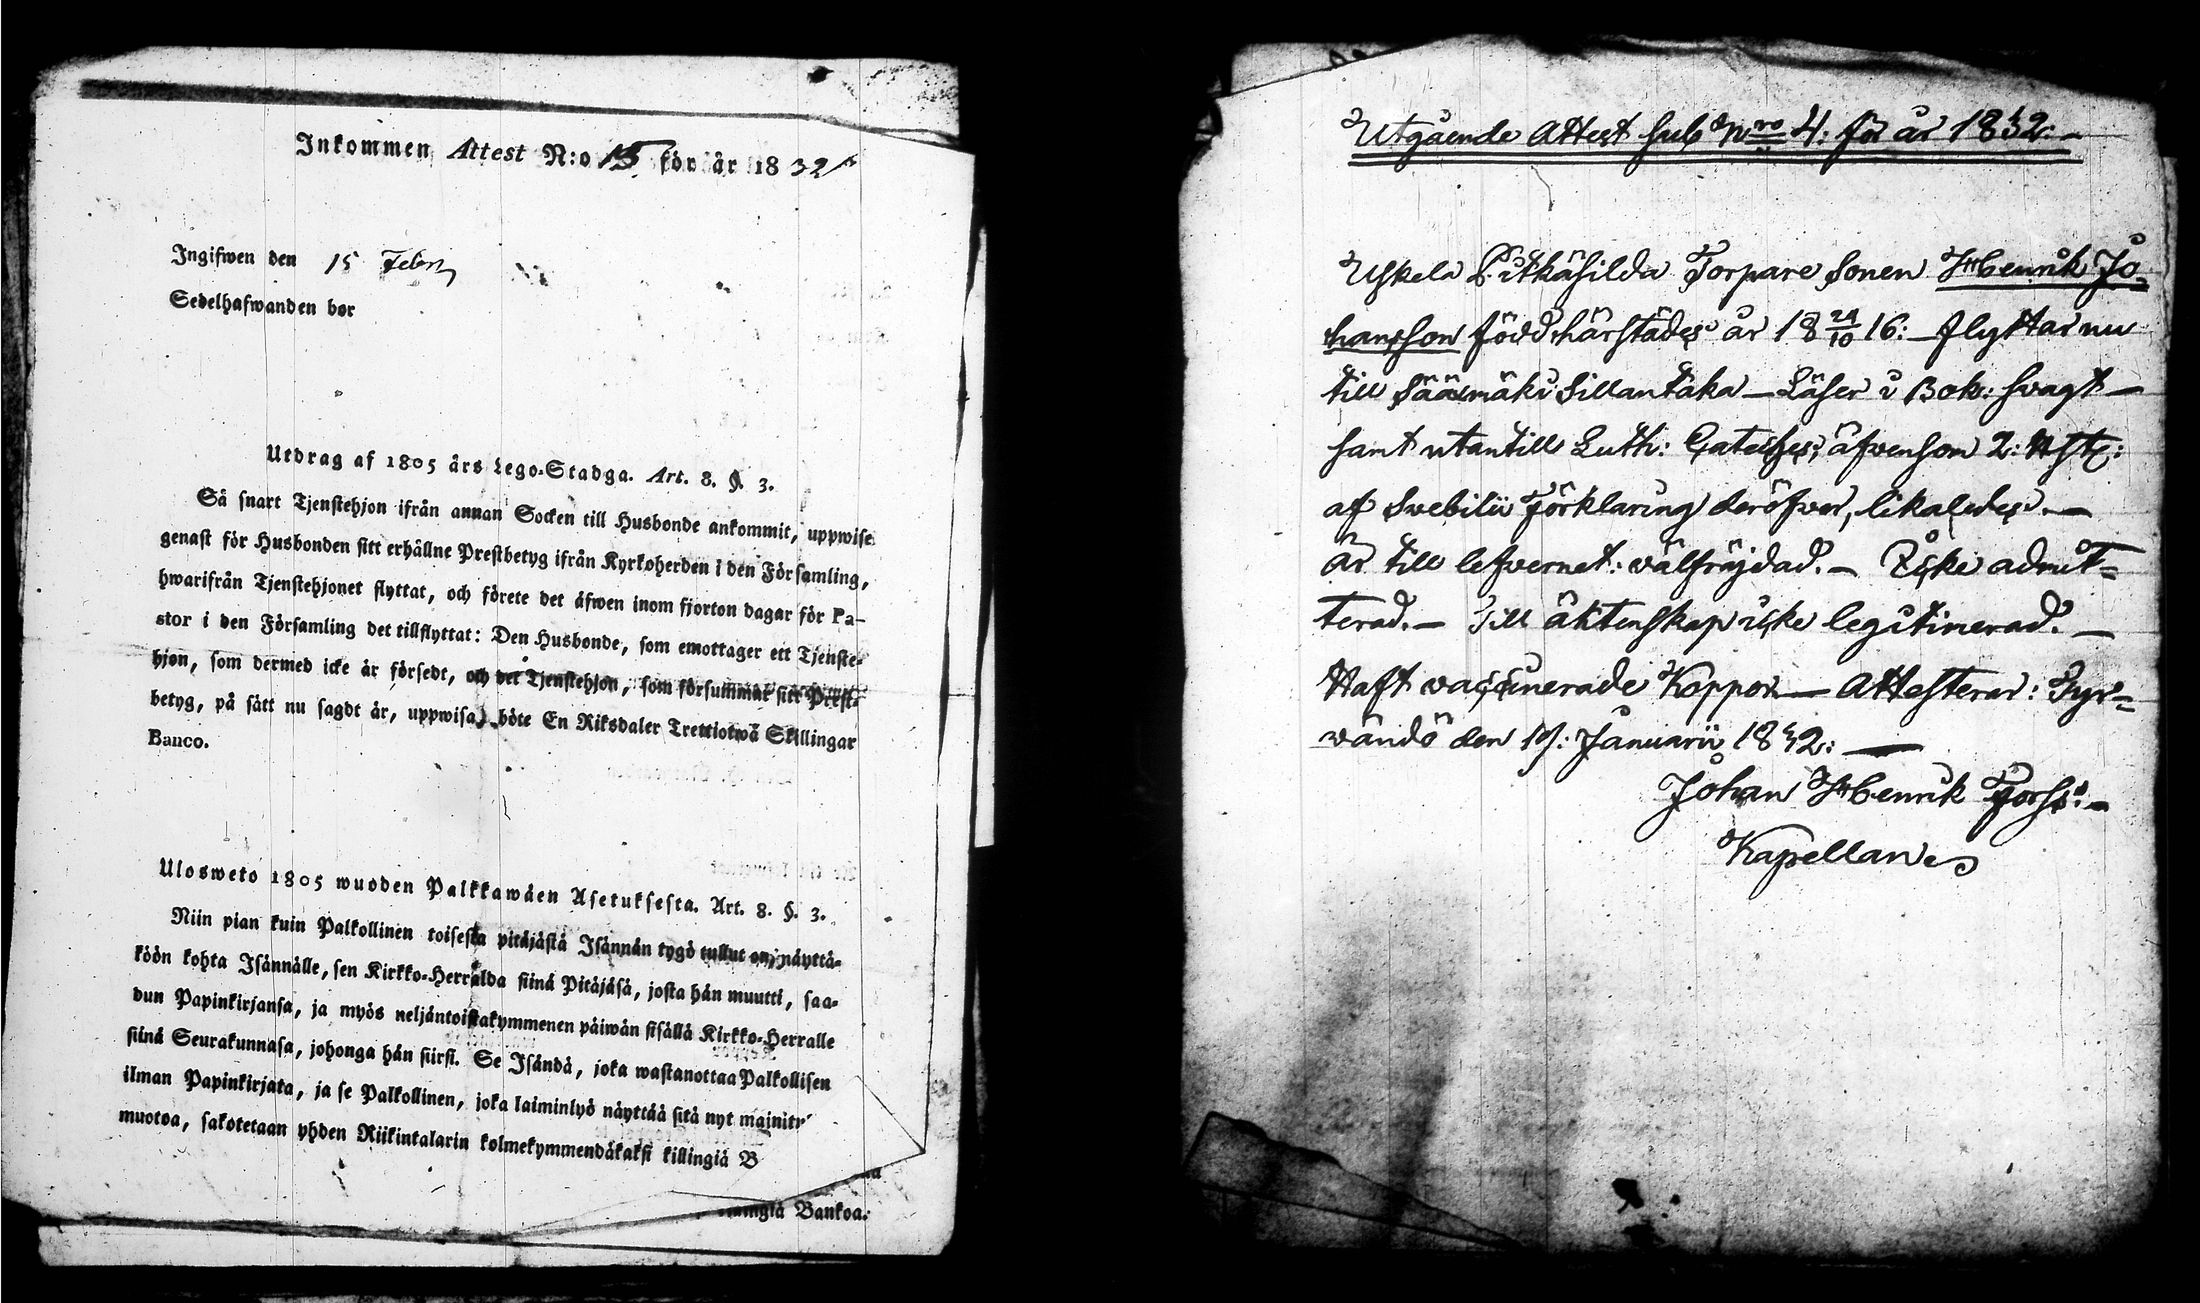 Inkommen Attest N:o 15 för år 1832
Ingifwen den 15 Febr
Sedelhafwanden bör
Utdrag af 1805 års Lego-Stadga. Art. 8. §. 3.
Så snart Tjenstehjon ifrån annan Socken till Husbonde ankommit, uppwise
genast för Husbonden sitt erhållne Prestbetyg ifrån Kyrkoherden i den Församling,
hwarifrån Tjenstehjonet flyttat, och förete det äfwen inom fjorton dagar för Pa-
stor i den Församling det tillflyttat: Den Husbonde, som emottager ett Tjenste-
hjon, som dermed icke är försedt, och det Tjenstehjon, som försummar sitt Prest-
betyg, på sätt nu sagdt är, uppwisa, böte En Riksdaler Trettiotwå Skillingar
Banco.
Ulosweto 1805 wuoden Palkkawäen Asetuksesta. Art. 8. §. 3.
Niin pian kuin Palkollinen toisesta pitäjästä Isännän tygö tullut on, näyttä-
köön kohta Isännälle, sen Kirkko-Herralda siinä Pitäjäsä, josta hän muutti, saa-
dun Papinkirjansa, ja myös neljäntoistakymmenen päiwän sisällä Kirkko-Herralle
siinä Seurakunnasa, johonga hän siirsi. Se Isändä, joka wastanottaa Palkollisen
ilman Papinkirjata, ja se Palkollinen, joka laiminlyö näyttää sitä nyt mainity
muotoa, sakotetaan yhden Riikintalarin kolmekymmendäkaksi killingiä B
Bankoa.
Utgående Attest sub Nro 4: för år 1832:
Uskela Pitkäsilda Torpare Sonen Henrik Jo
hansson född härstädes år 18 24/10 16: flyttar nu
till Sääxmäki Sillantaka — Läser i Bok: svagt —
samt utantill Luth: Cateches; äfvensom 2: Hst:
af Swebilii Förklaring deröfver, likaledes. —
är till lefvernet: välfräjdad. — Icke admit=
terad. — Till äktenskap icke legitimerad. —
Haft vaccinerade Koppor — Attesterar: Tyr=
väntö den 17: Januarii 1832: —
Johan Henrik Forss: —
Kapellan